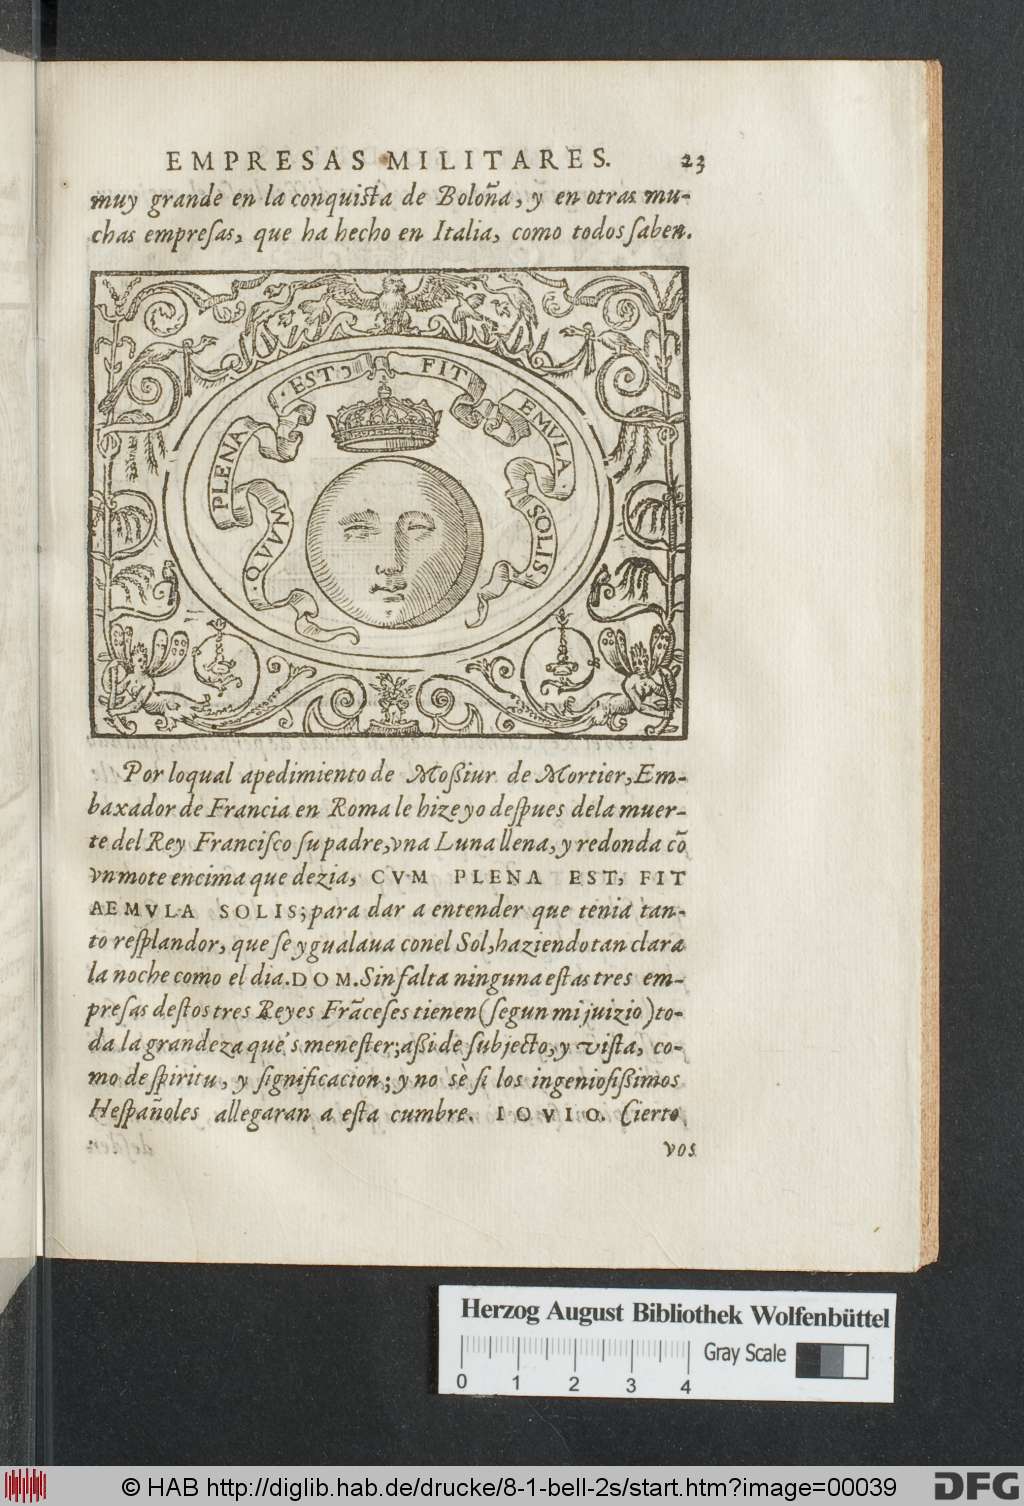 EMPRESAS MILITARES. 23
muy grande en la conquiſta de Boloña, y en otras mu-
chas empreſas, que ha hecho en Italia, como todos ſaben.
·QVVM PLENA ·EST· FIT EMVLA· SOLIS·
Por loqual apedimiento de Moßiur de Mortier, Em-
baxador de Francia en Roma le hize yo deſpues dela muer-
te del Rey Franciſco ſu padre, vna Luna llena, y redonda cõ
vn mote encima que dezia, CVM PLENA EST, FIT
AEMVLA SOLIS; para dar a entender que tenia tan-
to reſplandor, que ſe ygualaua conel Sol, haziendo tan clara
la noche como el dia. DOM. Sin falta ninguna eſtas tres em-
preſas deſtos tres Reyes Frãceſes tienen (ſegun mi juizio) to-
da la grandeza qué s meneſter; aßi de ſubjecto, y viſta, co-
mo de ſpiritu, y ſignificacion; y no sè ſi los ingenioſißimos
Heſpañoles allegaran a eſta cumbre. IOVIO. Cierto
vos
Herzog August Bibliothek Wolfenbüttel
Gray Scale
0 1 2 3 4
© HAB http://diglib.hab.de/drucke/8-1-bell-2s/start.htm?image=00039
DFG